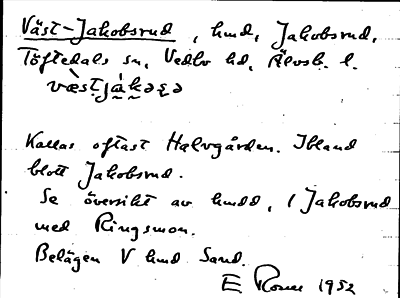 Väst-Jakobsrud, hmd, Jakobsrud,
Töftedals sn, Vedbo hd, Älvsb. l.
Kallas oftast Halvgården. Ibland
blott Jakobsrud.
Se översikt av hmdd, i Jakobsrud
med Ringsmon.
Belägen V hmd Sand.
E 1952